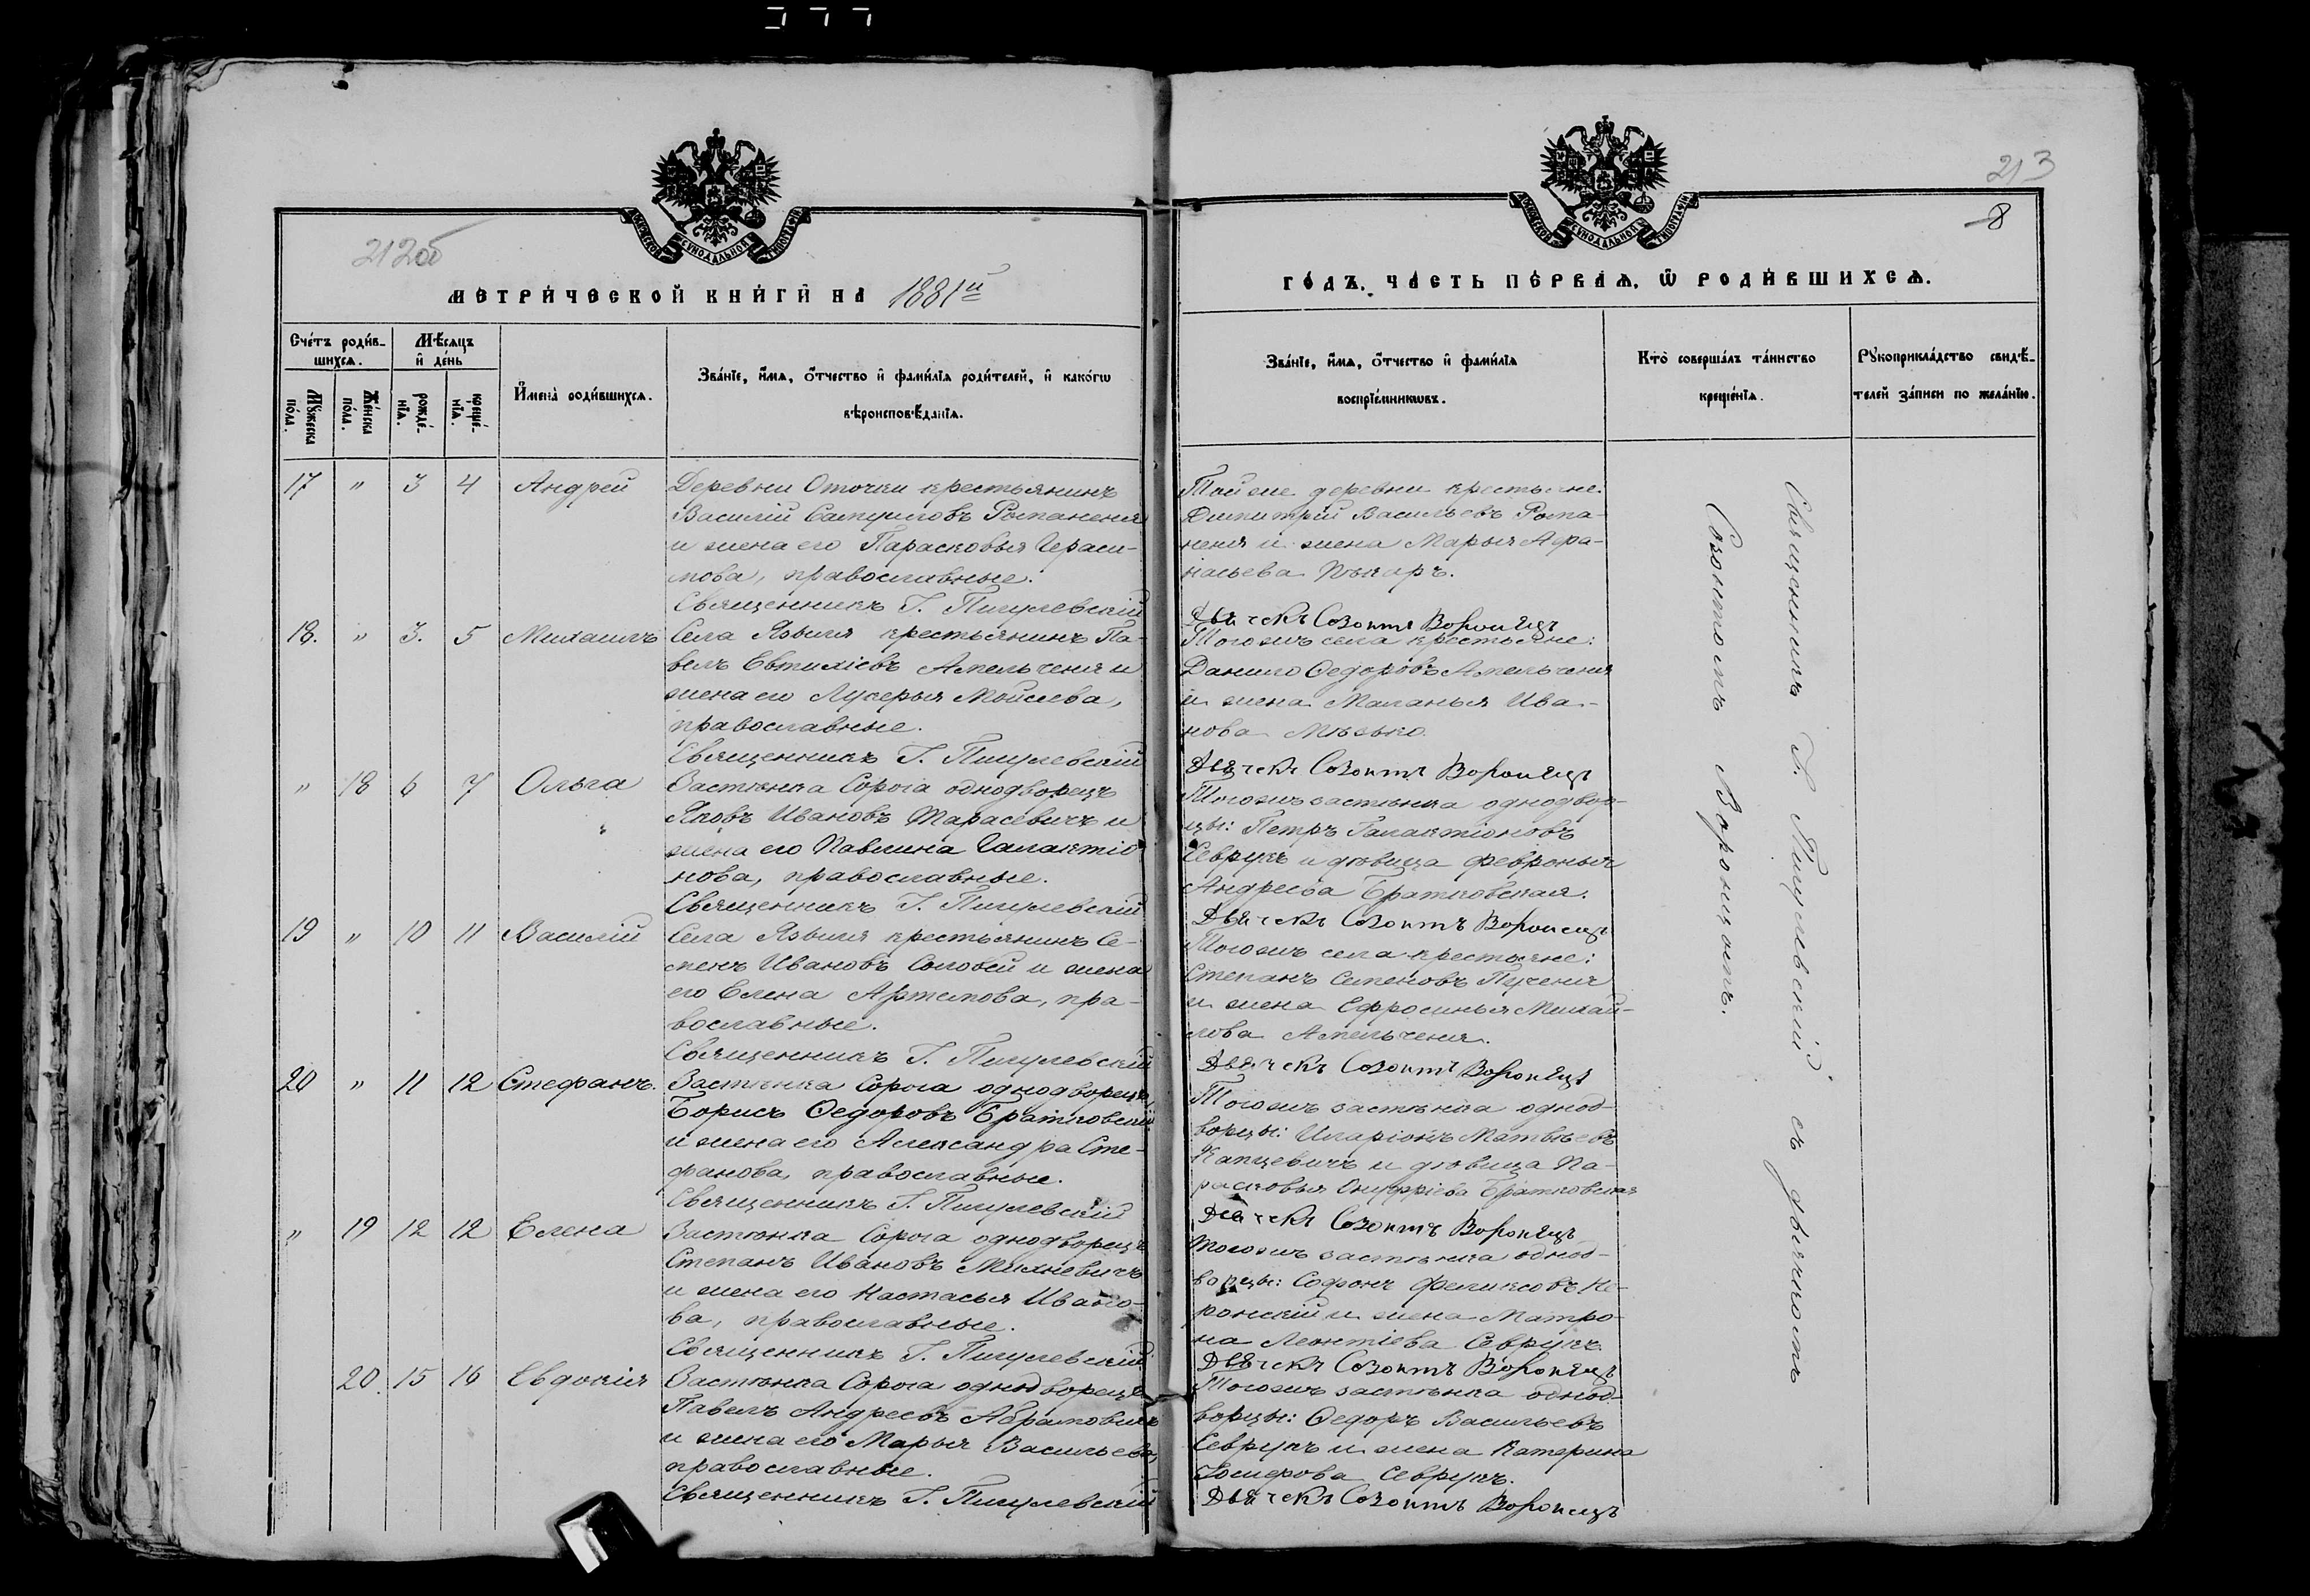 213
8
212об
МЕТРИЧЕСКОЙ КНИГИ НА 1881й
Счетъ родив-
шихся.
Мѣсяцъ
и день
Мужеска
пола.
Женска
пола.
рожде-
нія.
креще-
нія.
Имена родившихся.
Званіе, имя, отчество и фамилія родителей, и какогѡ
вѣроисповѣданія.
17 " 3 4 Андрей
Деревни Оточки крестьянинъ
Василій Романеня
и жена его Парасковья Гераси-
мова, православные.
Священникъ Г. Пигулевскій
18. " 3. 5 Михаилъ
Села Язвиля крестьянинъ Па-
велъ Евтихіевъ Амельченя и
жена его Лукерья Мойсеева,
православные.
Священникъ Г. Пигулевскій
" 18 6 7 Ольга
Застѣнка Сорога однодворецъ
Яковъ Ивановъ Тарасевичъ и
жена его Павлина Галактіо
нова, православные.
Священникъ Г. Пигулевскій
19 " 10 11 Василій
Села Язвиля крестьянинъ Се-
менъ Ивановъ Соловей и жена
его Елена Артемова, пра-
вославные.
Священникъ Г. Пигулевскій
20 " 11 12 Стефанъ.
Застѣнка Сорога однодворецъ
Борисъ Ѳедоровъ Братковскій
и жена его Александра Сте-
фанова, православные.
Священникъ Г. Пигулевскій
" 19 12 12 Елена
Застѣнка Сорога однодворецъ
Степанъ Ивановъ Михневичъ
и жена его Настасья Ивано-
ва, православные.
Священникъ Г. Пигулевскій
20. 15 16 Евдокія
Застѣнка Сорога однодворецъ
Павелъ Андреевъ Абрамовичъ
и жена его Марья Васильева,
православные.
Священникъ Г. Пигулевскій
ГОДЪ. ЧАСТЬ ПЕРВАЯ. Ѿ РОДИВШИХСЯ.
Званіе, имя, отчество и фамилія
воспріемниковъ.
Кто совершалъ таинство
крещенія.
Рукоприкладство свидѣ-
телей записи по желанію.
Той же деревни крестьяне:
Димитрій Васильевъ Рома-
неня и жена Марья Афа-
насьева
Дьячекъ Созонтъ Воронецъ
Тогожъ села крестьяне:
Данило Ѳедоровъ Амельченя
и жена Маланья Ива-
нова
Дьячекъ Созонтъ Воронецъ
Тогожъ застѣнка однодвор-
цы: Петръ Галактіоновъ
Севрукъ и дѣвица Февронья
Андреева Братковская.
Дьячекъ Созонтъ Воронецъ
Тогожъ села крестьяне:
Степанъ Семеновъ Пученя
и жена Ефросинья Михай-
лова Амельченя.
Дьячекъ Созонтъ Воронецъ
Тогожъ застѣнка однод-
ворцы: Иларіонъ Матвѣевъ
Капцевичъ и дѣвица Па-
расковья Онуфріева Братковская
Дьячекъ Созонтъ Воронецъ
Тогожъ застѣнка однод-
ворцы: Софонъ Феликсовъ Не-
ронскій и жена Матро-
на Леонтіева Севрукъ.
Дьячекъ Созонтъ Воронецъ
Тогожъ застѣнка однод-
ворцы: Ѳедоръ Васильевъ
Севрукъ и жена Катерина
Іосифова Севрукъ.
Дьячекъ Созонтъ Воронецъ
Священникъ Г. Пигулевскій съ дьячкомъ
Созонтомъ Воронцомъ.